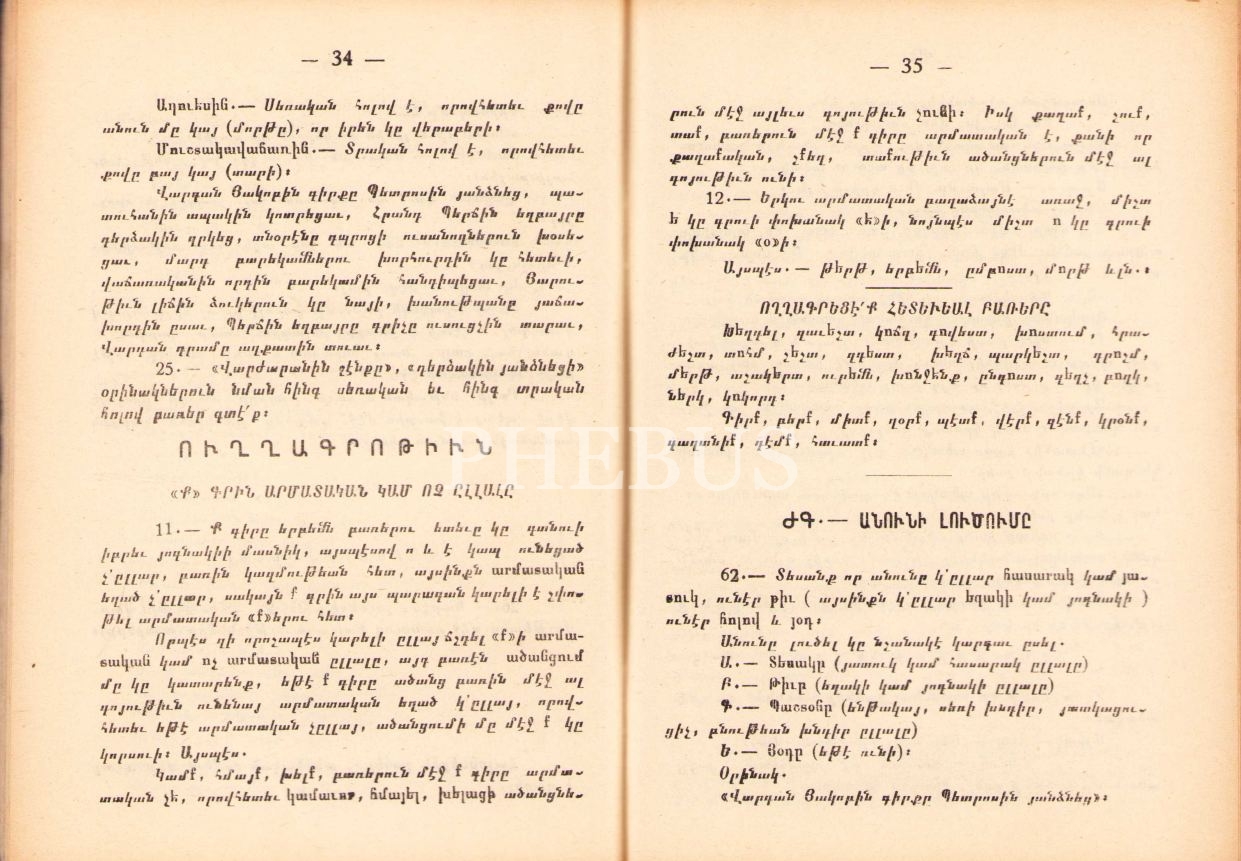 — 34 —
Աղուեսին.— Սեռական հոլով է, որովհետեւ քովը
անուն մը կայ (մորթը), որ իրեն կը վերաբերի։
Մուշտակավաճառին.— Տրական հոլով է, որովհետեւ
քովը բայ կայ (տարի)։
Վարդան Յակոբին գիրքը Պետրոսին յանձնեց, պա-
տուհանին ապակին կոտրեցաւ, Հրանդ Պերճին եղբայրը
դերձակին ղրկեց, տնօրէնը դպրոցի ուսանողներուն խօսե-
ցաւ, մարդ բարեկամներու խորհուրդին կը հետեւի,
վաճառականին որդին բարեկամին հանդիպեցաւ, Յարու-
թիւն լիճին ձուկերուն կը նայի, խանութպանը յաճա-
խորդին ըսաւ, Պերճին եղբայրը գրիչը ուսուցչին տարաւ,
Վարդան դրամը աղքատին տուաւ։
25. — «Վարժարանին շէնքը», «դերձակին յանձնեցի»
օրինակներուն նման հինգ սեռական եւ հինգ տրական
հոլով բառեր գտէ՛ք։
ՈՒՂՂԱԳՐՈԹԻՒՆ
«Ք» ԳՐԻՆ ԱՐՄԱՏԱԿԱՆ ԿԱՄ ՈՉ ԸԼԼԱԼԸ
11.— Ք գիրը երբեմն բառերու ետեւը կը դանուի
իբրեւ յոգնակիի մասնիկ, այսպէսով ո և է կապ ունեցած
չ՚ըլլար, բառին կազմութեան հետ, այսինքն արմատական
եղած չ՚ըլլար, սակայն ք գրին այս պարագան կարելի է չփո-
թել արմատական «ք»երու հետ։
Որպէս զի որոշապէս կարելի ըլլայ ճշդել «ք»ի արմա-
տական կամ ոչ արմատական ըլլալը, այդ բառէն ածանցում
մը կը կատարենք, եթէ ք գիրը ածանց բառին մէջ ալ
գոյութիւն ունենայ արմատական եղած կ՚ըլլայ, որով-
հետեւ եթէ արմատական չըլլայ, ածանցումի մը մէջ ք կը
կորսուի։ Այսպէս.
Կամք, հմայք, խելք, բառերուն մէջ ք գիրը արմա-
տական չէ, որովհետեւ կամաւոր, հմայել, խելացի ածանցնե-
— 35 —
րուն մէջ այլեւս գոյութիւն չունի։ Իսկ քաղաք, չուք,
տաք, բառերուն մէջ ք գիրը արմատական է, քանի որ
քաղաքական, չքեղ, տաքութիւն ածանցներուն մէջ ալ
գոյութիւն ունի։
12.— Երկու արմատական բաղաձայնէ առաջ, միշտ
ե կը գրուի փոխանակ «է»ի, նոյնպէս միշտ ո կը գրուի
փոխանակ «օ»ի։
Այսպէս.— թերթ, երբեմն, ըմբոստ, մորթ ևլն.։
ՈՂՂԱԳՐԵՑԷ՛Ք ՀԵՏԵՒԵԱԼ ԲԱՌԵՐԸ
Խեղդել, դաւեշտ, կոճղ, գովեստ, խոստում, հրա-
ժեշտ, տոհմ, չեշտ, զգեստ, խեղճ, պարկեշտ, դրոշմ,
մերթ, աշակերտ, ուրեմն, խոնջէնք, ընդոստ, զեղչ, բողկ,
ներկ, կոկորդ։
Գիրք, բերք, միտք, ղօրք, պէտք, վէրք, զէնք, կրօնք,
գաղանիք, դէմք, հաւատք։
ԺԳ.— ԱՆՈՒՆԻ ԼՈՒԾՈՒՄԸ
62.— Տեսանք որ անունը կ՚ըլլար հասարակ կամ յա-
տուկ, ունէր թիւ (այսինքն կ՚ըլլար եզակի կամ յոգնակի)
ունէր հոլով և յօդ։
Անունը լուծել կը նշանակէ կարգաւ ըսել.
Ա.— Տեսակը (յատուկ կամ հասարակ ըլլալը)
Բ.— Թիւը (եզակի կամ յոգնակի ըլլալը)
Գ.— Պաշտօնը (ենթակայ, սեռի խնդիր, յատկացու-
ցիչ, բնութեան խնդիր ըլլալը)
Ե.— Յօդը (եթէ ունի)։
Օրինակ.
«Վարդան Յակոբին գիրքը Պետրոսին յանձնեց»։
PHEBUS